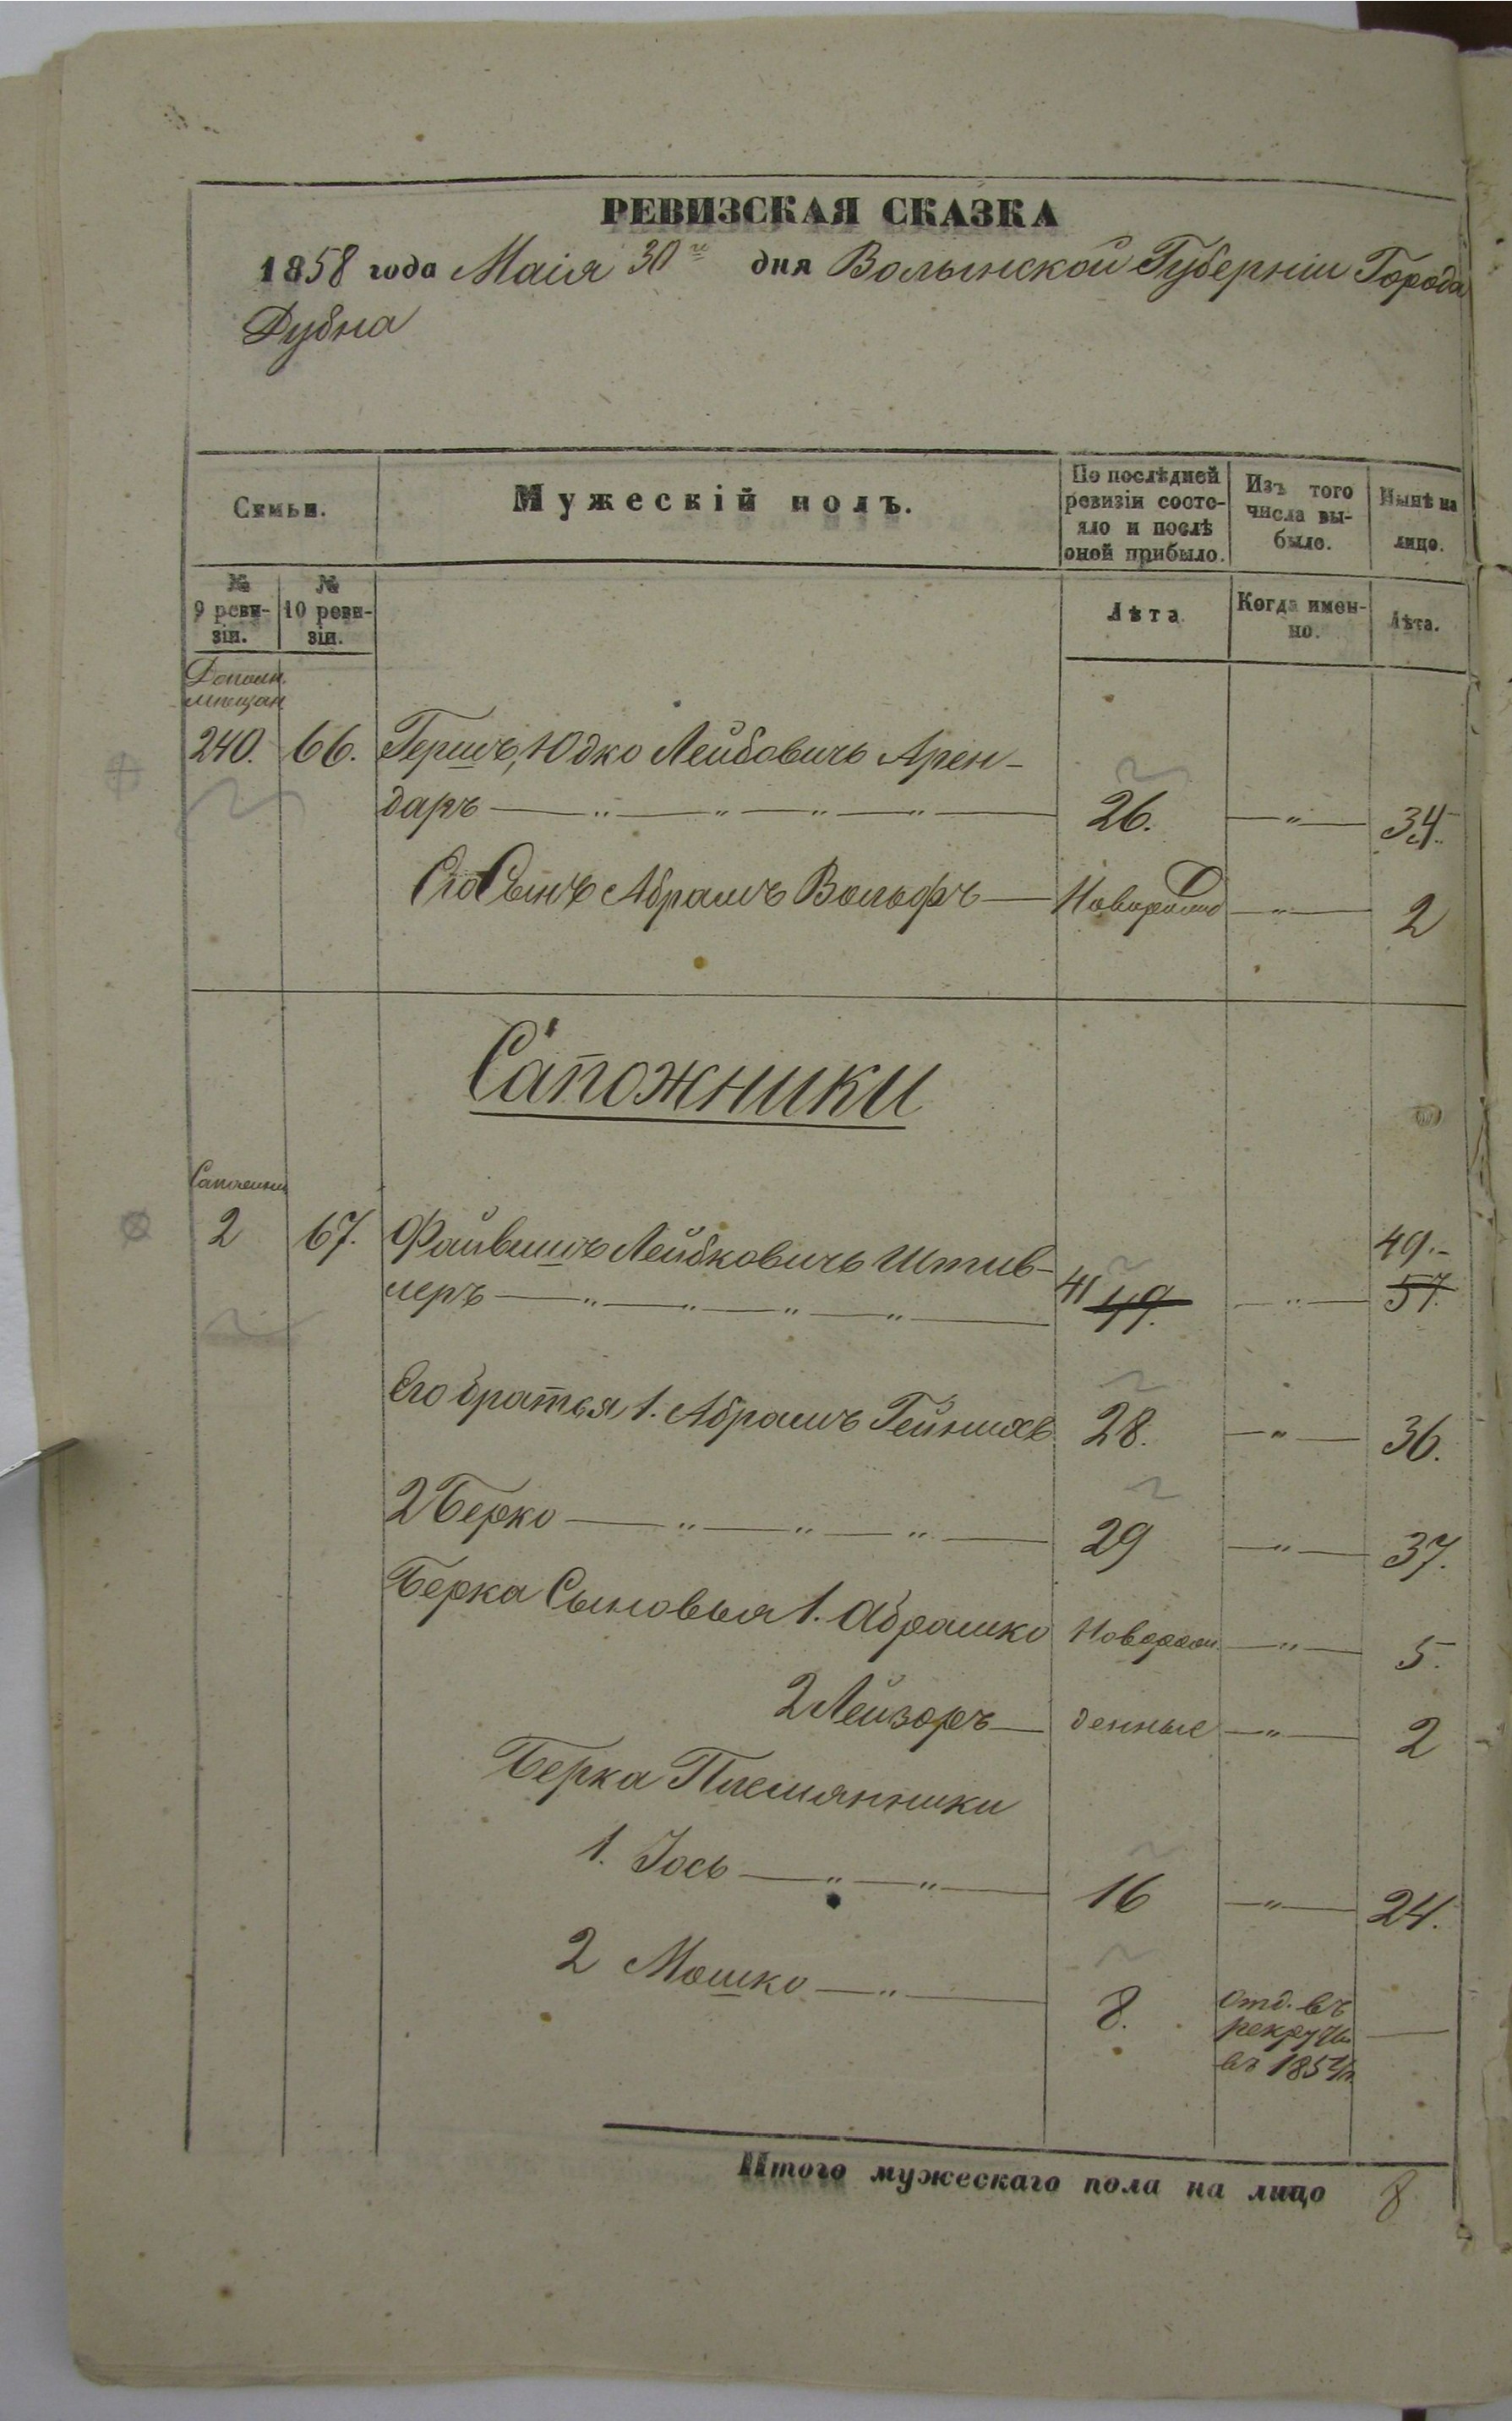 РЕВИЗСКАЯ СКАЗКА
1858 года Маія 30го дня Волынской Губерніи Города
Дубна
Семьи.
Мужескій полъ.
По послѣдней ревизіи состояло и послѣ оной прибыло.
Изъ того числа выбыло.
Нынѣ на лицо.
№ 9 ревизіи.
№ 10 ревизіи.
Лѣта.
Когда именно.
Лѣта.
Дополн.
мѣщан
240. 66. Гершъ, Юдко Лейбовичь Арен-
даръ — " — " — " — " — 26. — " — 34.
Его Сынъ Абрамъ Вольфъ — Новорожд — " — 2
Сапожники
Сапожники
2 67. Файвишъ Лейбковичь Штив- 49.-
леръ — " — " — " — " — 41 49. — " — 57.
Его братья 1. Абрамъ Гейнихъ 28. — " — 36.
2 Берко — " — " — " — 29 — " — 37.
Берка Сыновья 1. АбрашкоНоворож. — " — 5.
2 Лейзоръ — денные — " — 2
Берка Племянники
1. Іось — " — " — 16 — " — 24.
2 Мошко — " — 8. отд. въ
рекруты —
въ 1854 г.
Итого мужескаго пола на лицо 8